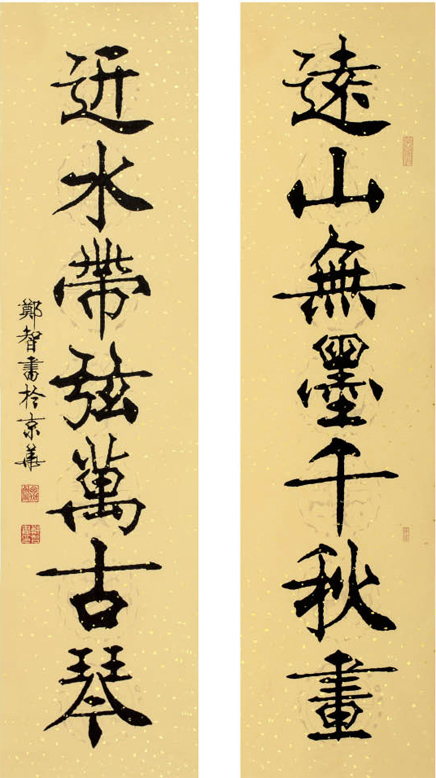 遠山無墨千秋畫
近水帶弦萬古琴
鄭智書於京華